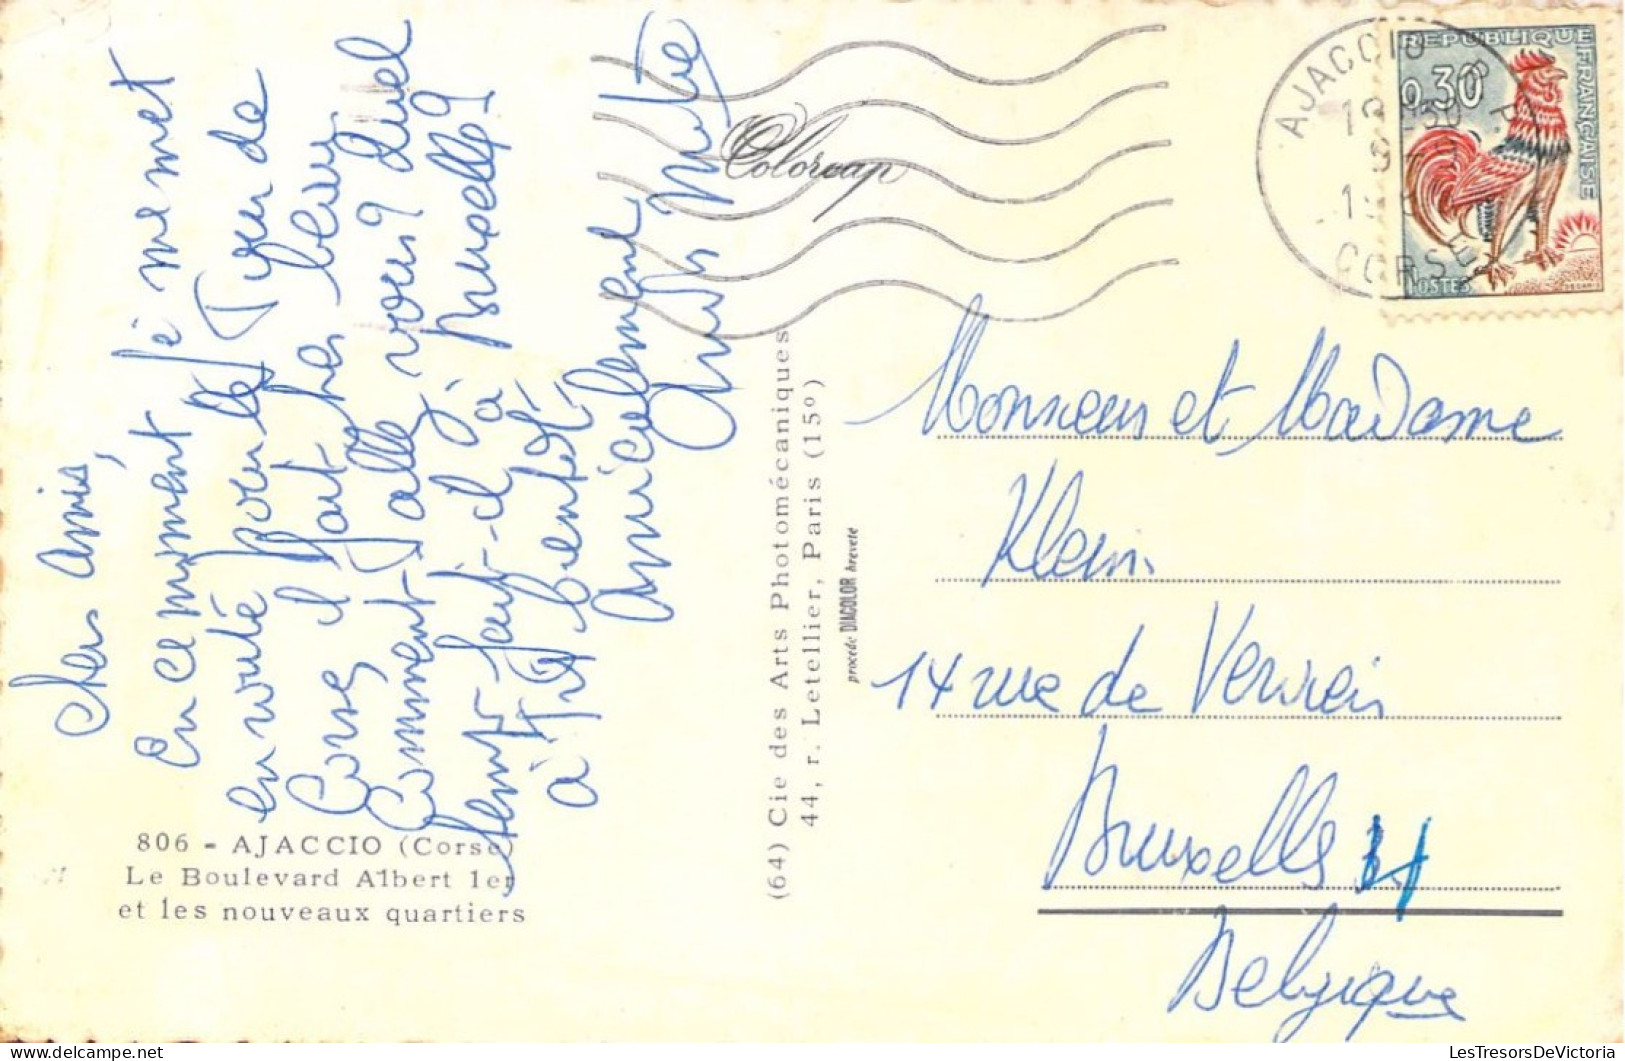 Chers amis,
En ce moment je me met
en route pour le Tour de
Corse, il fait très beau
Comment allez vous? Quel
temps fait-il à Bruxelles?
à très bientôt,
Amicalement
806 - AJACCIO (Corse)
Le Boulevard Albert 1er
et les nouveaux quartiers
(64) Cie des Arts Photomécaniques
44, r. Letellier, Paris (15º)
procédé DIACOLOR breveté
Colorcap
AJACCIO
CORSE
REPUBLIQUE FRANÇAISE
0,30
POSTES
DECARIS
Monsieur et Madame
Klein
14 rue de
Bruxelles
Belgique
LesTresorsDeVictoria